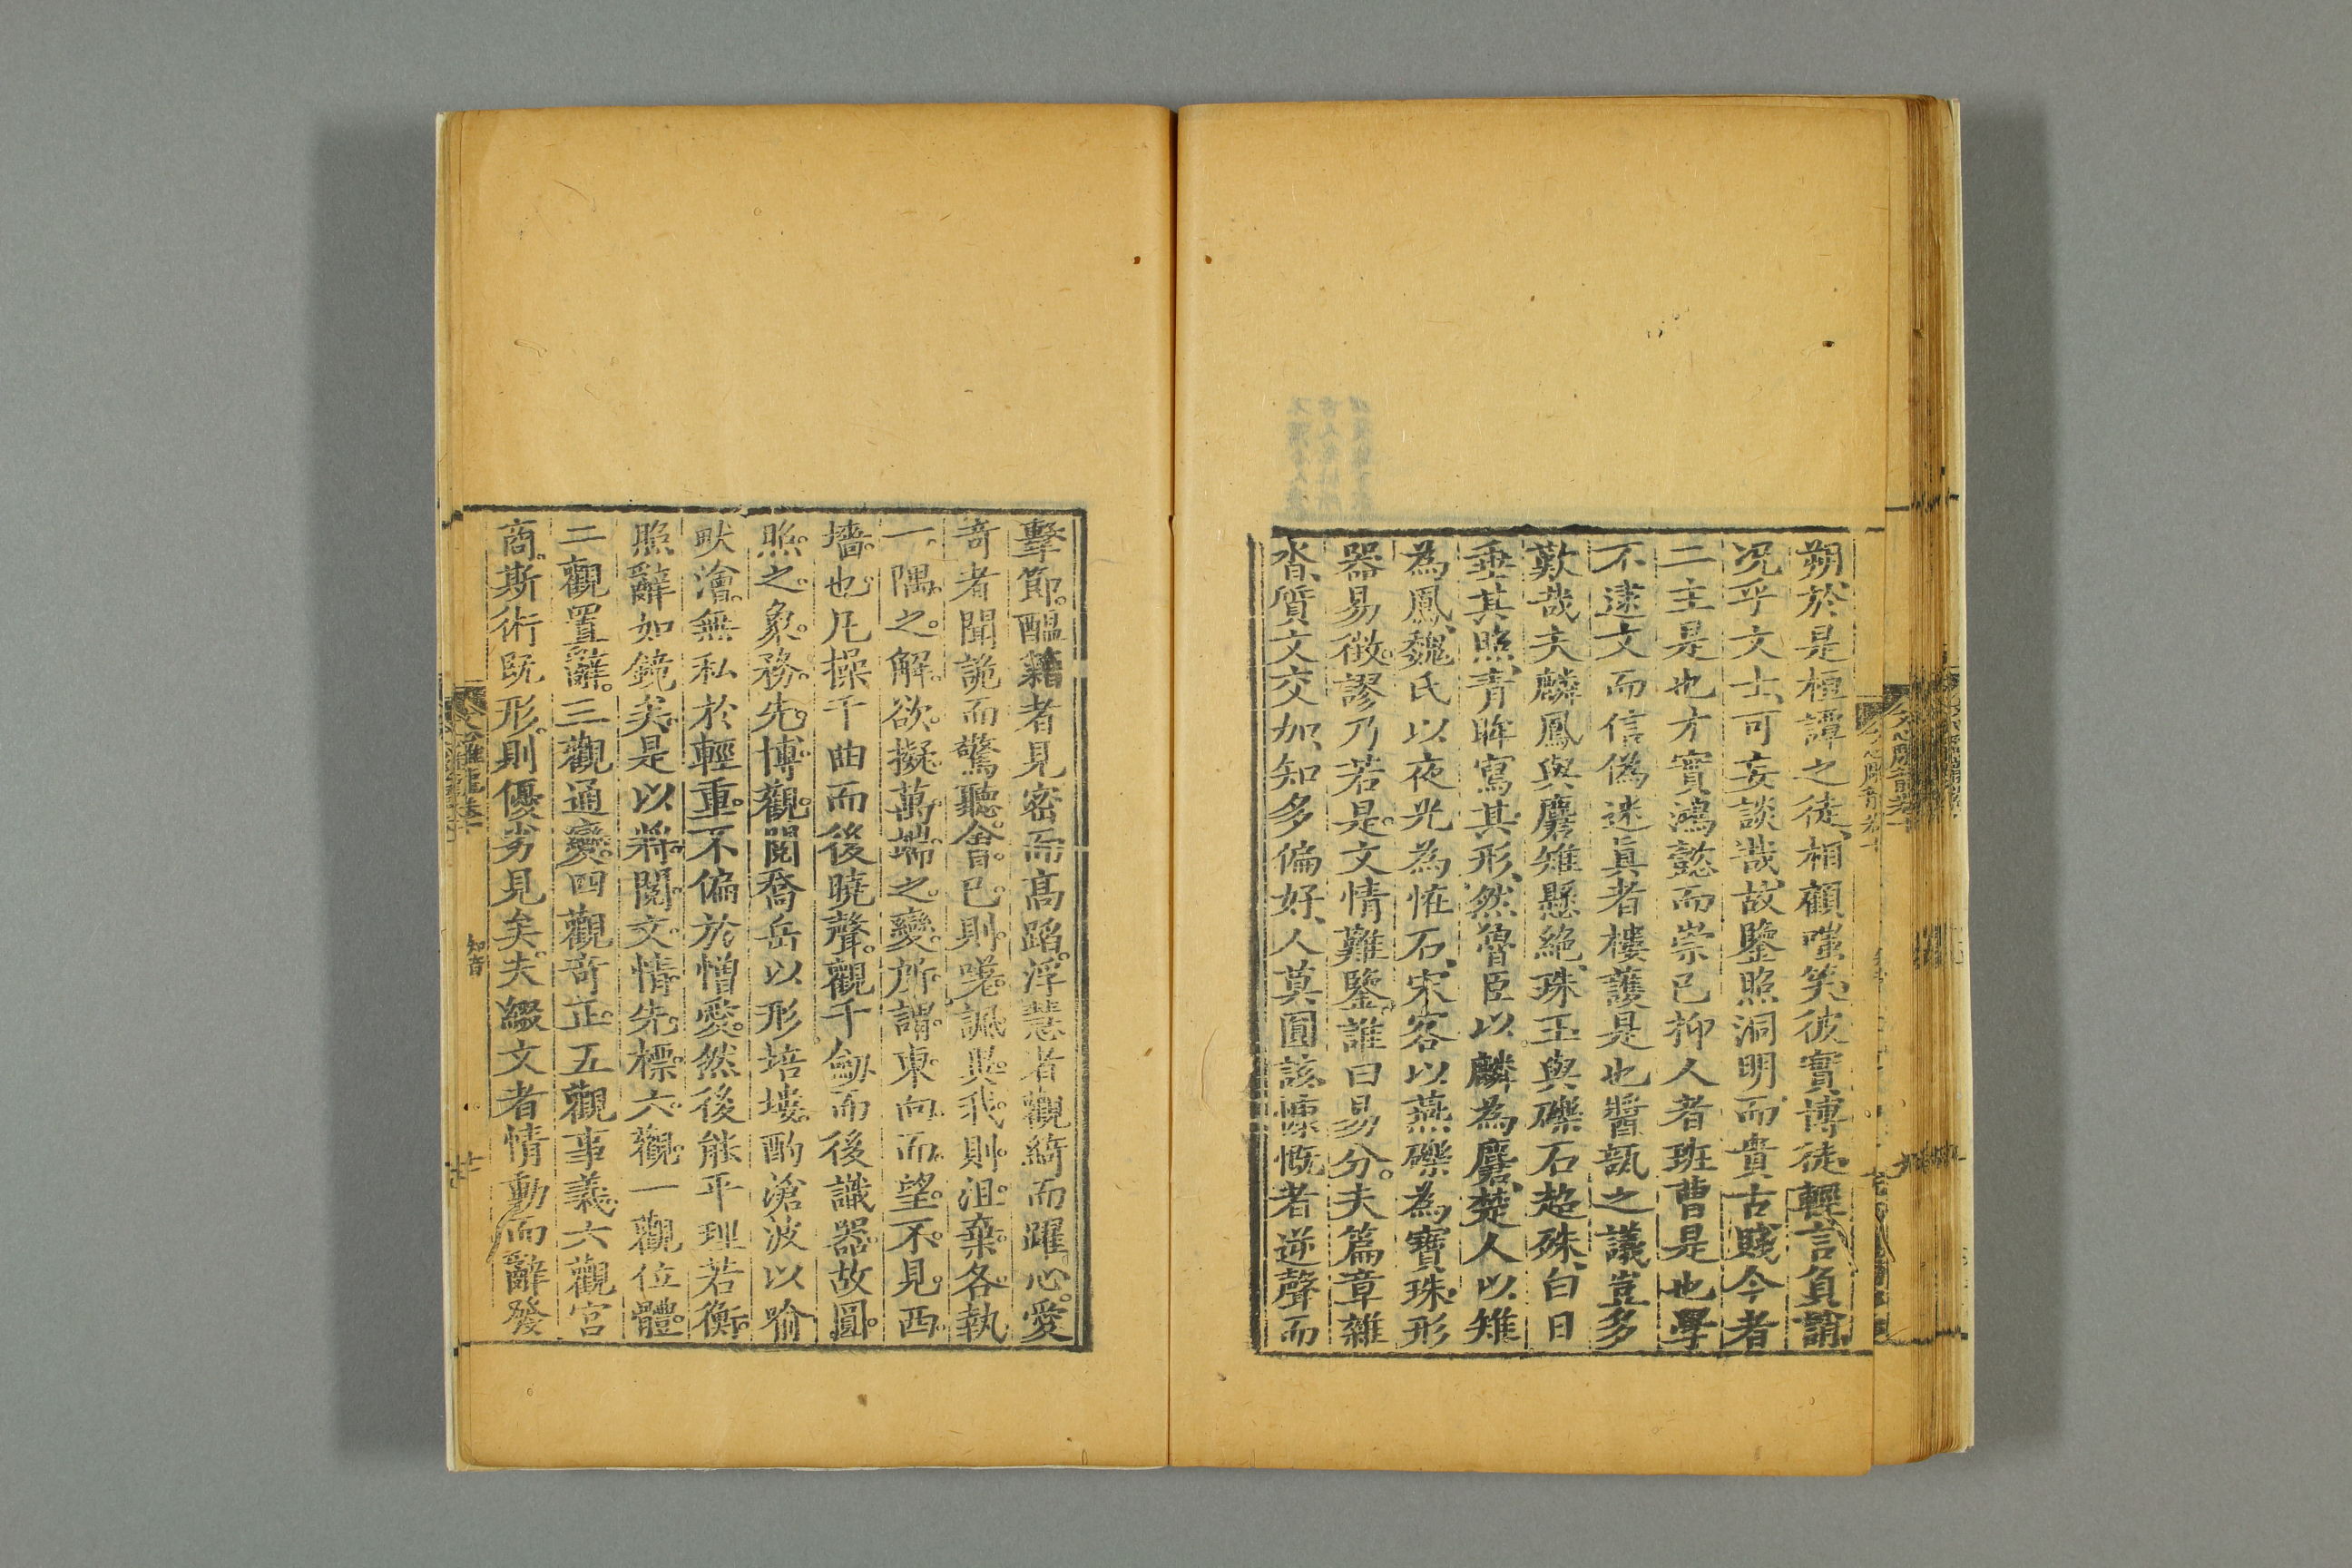 朔於是桓譚之徒、相顧嗤笑、彼實博徒、輕言負誚、
况乎文士、可妄談哉、故鑒照洞明、而貴古賤今者
二主是也才實鴻懿而崇已抑人者班曹是也學
不逮文而信偽迷眞者樓護是也醬瓿之議豈多
歎哉夫麟鳳與麏雉懸絶、珠玉與礫石超殊、白日
垂其照、青眸寫其形、然魯臣以麟為麏、楚人以雉
為鳳、魏氏以夜光為恠石、宋客以燕礫為寶珠、形
器易徵。謬乃若是。文情難鑒。誰曰易分。夫篇章雜
沓、質文交加、知多偏好、人莫圓該、慷慨者逆聲而
擊節。醞藉者見密而高蹈。浮慧者觀綺而躍心。愛
竒者聞詭而驚聽。會。已。則。嗟。諷。異。我。則。沮。棄。各。執
一。隅。之。解。欲。擬。萬。端。之。變。所。謂。東。向。而。望。不。見。西。
墻。也。凡操千曲而後曉聲。觀千劒而後識器。故圓。
照。之。象。務。先。博。觀。閲喬岳以形培塿。酌滄波以喻
畎澮。無私於輕重。不偏於憎愛。然後能平理若衡。
照辭如鏡矣。是以將。閱。文。情。先。標。六。觀。一觀位體。
二觀置辭。三觀通變。四觀竒正。五觀事義。六觀宮
商。斯術旣形。則優劣見矣。夫綴文者情動而辭發
文心雕龍卷十
知音